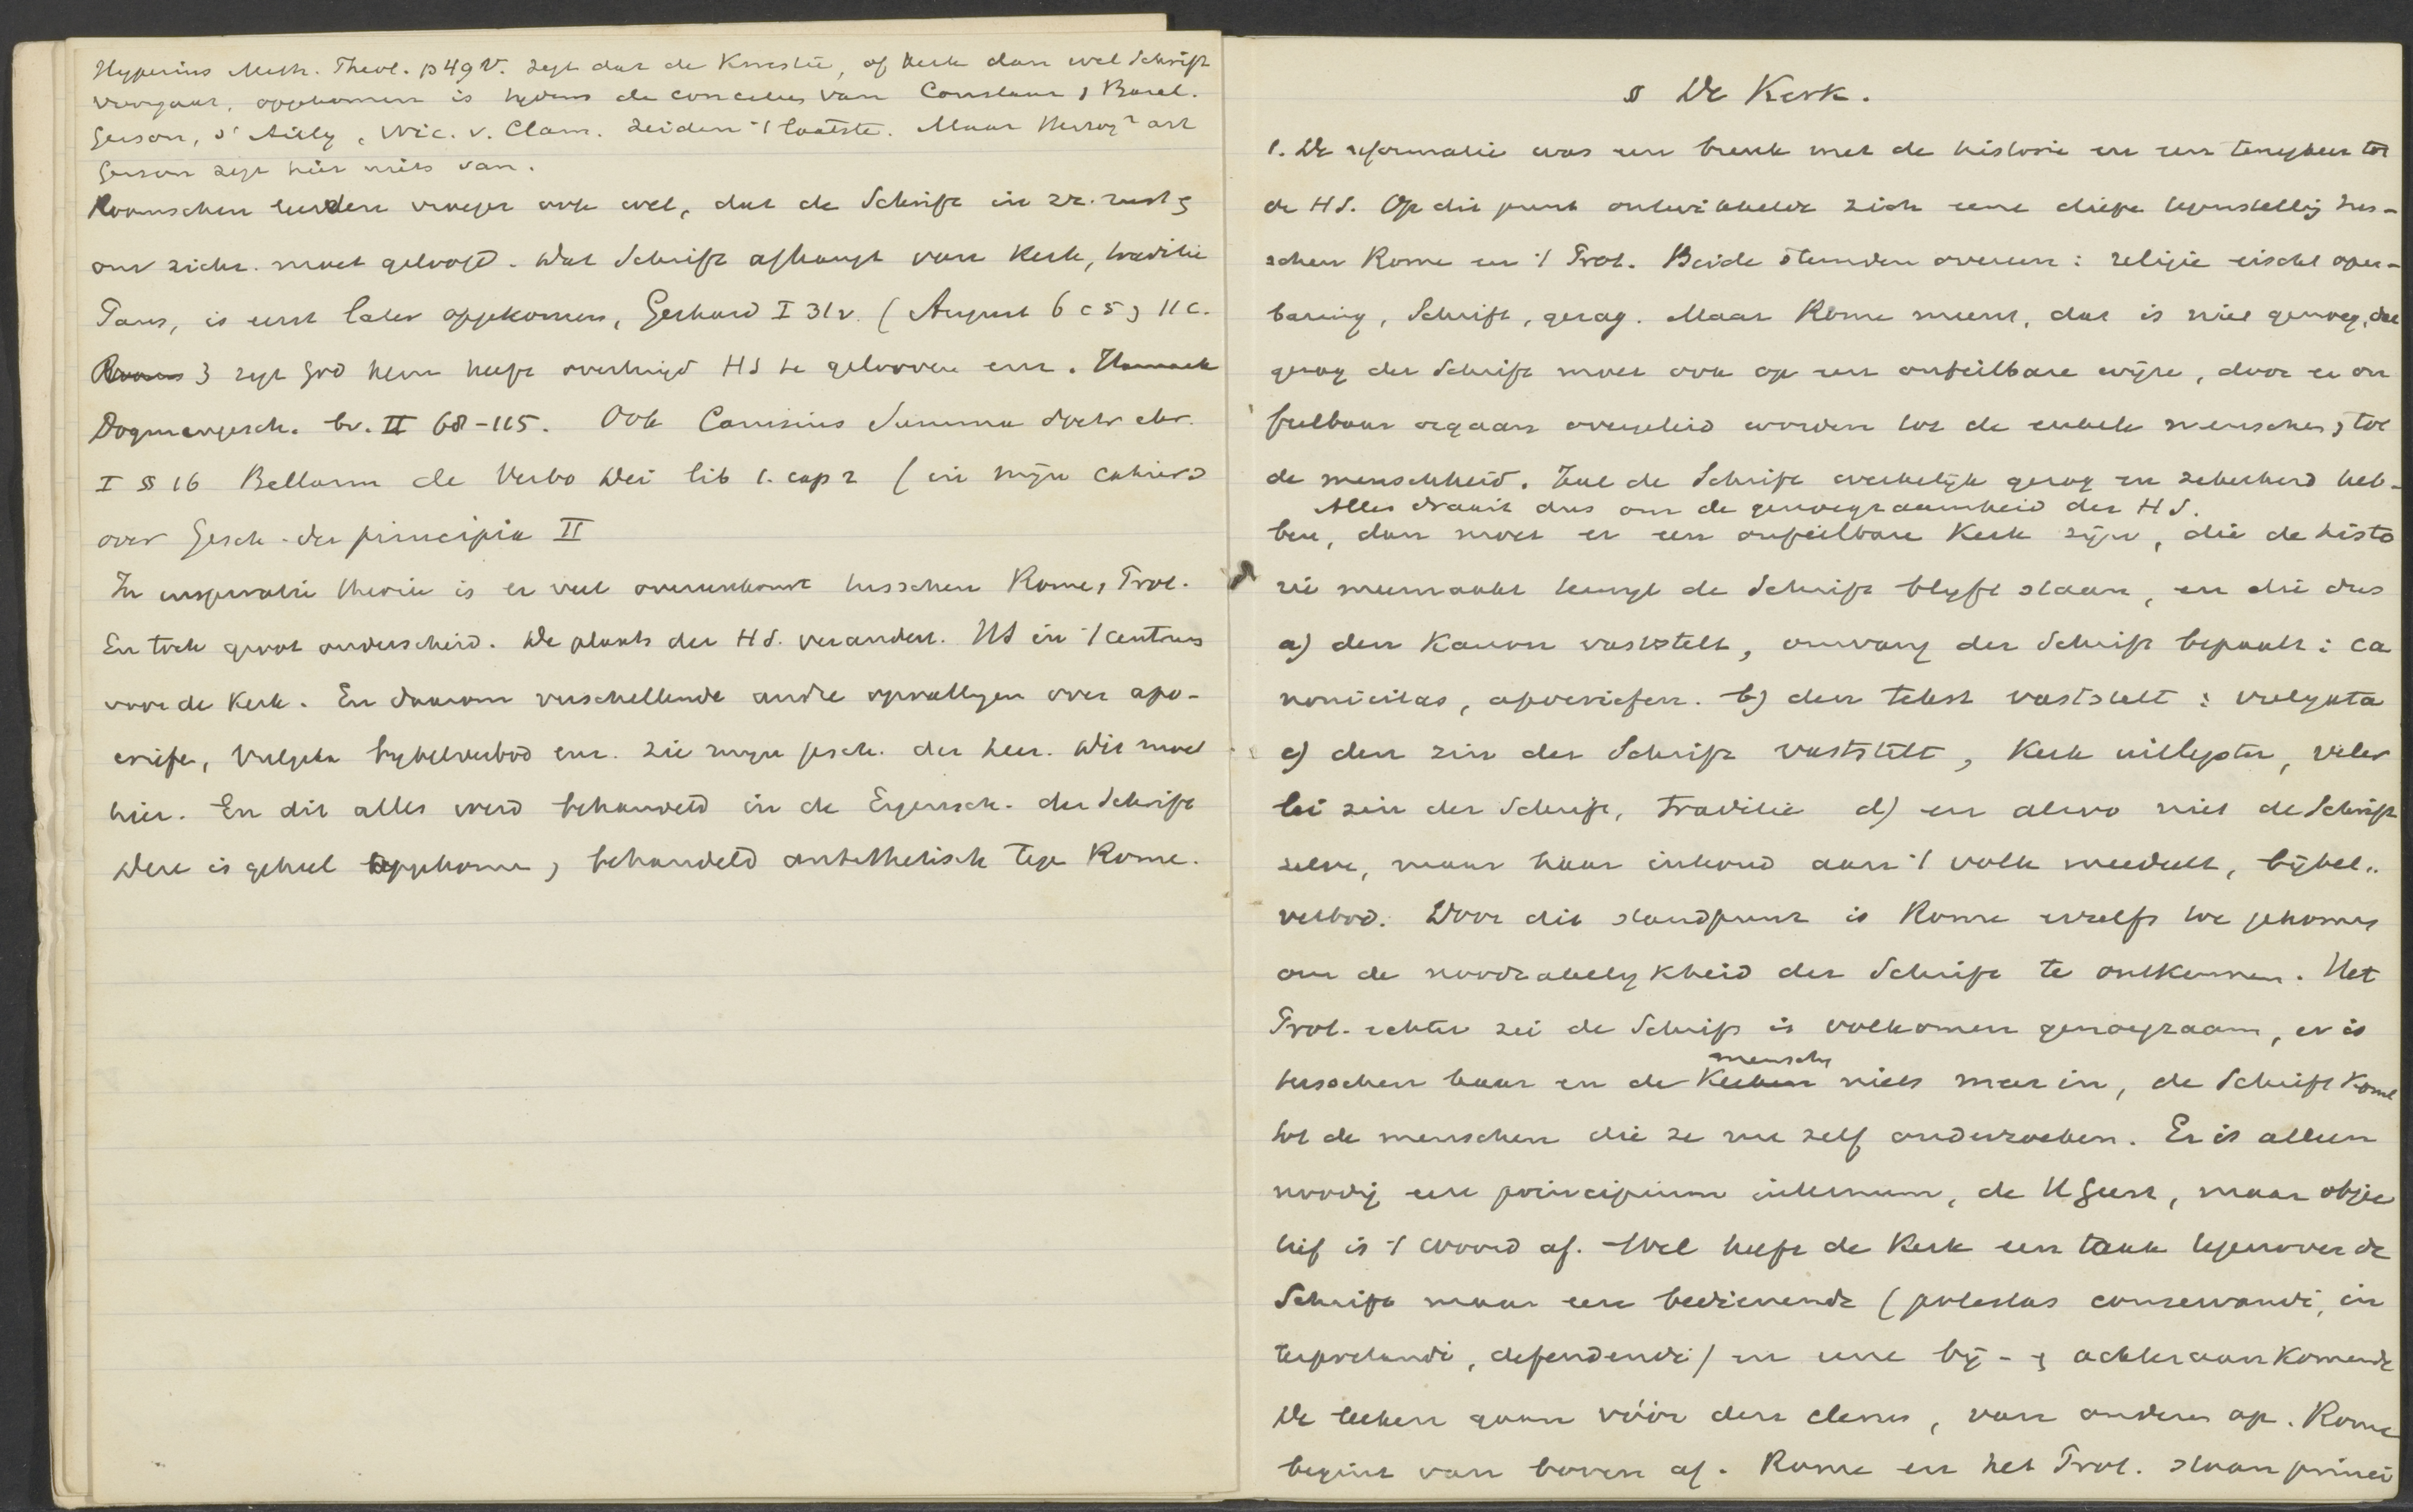 Hyperius Meth. Theol. p 49 v. zegt dat de Kwestie, of Kerk dan wel Schrift
voorgaat, opgekomen is tydens de concilies van Constanz, Basel.
Gerson, d'Ailly, Nic. v. Clam. zeiden 't laatste. Maar Herzog² art
Gerson zegt hier niets van.
Roomschen leerden vroeger ook wel, dat de Schrift in zr. rust &
om zichz. moet geloofd. Dat Schrift afhangt van Kerk, traditie
Paus, is eerst later opgekomen, Gerhard I 31v. (August 6 c 5, 11 c.
3 zegt God hem heeft overtuigd HS te gelooven enz. Harnack
Dogmengesch. bv. II 68-115. Ook Canisius Summa doctr chr.
I § 16 Bellarm de Verbo Dei lib 1. cap 2 (in mijn cahiers
over Gesch. der principia II
In inspiratie theorie is er veel overeenkomst tusschen Rome, Prot.
En toch groot onderscheid. De plaats der HS. verandert. HS in 't centrum
voor de Kerk. En daarom verschillende andre opvattingen over apo-
criefe, Vulgata bybelverbod enz. Zie myn gesch. der theor. Dit moet
hier. En dit alles werd behandeld in de Eigensch. der Schrift
Deze is geheel opgekome, behandeld antithetisch tege Rome.
§ De Kerk.
1. De reformatie was een breuk met de historie en een terugkeer tot
de HS. Op dit punt ontwikkelde zich eene diepe tegenstelling tus-
schen Rome en 't Prot. Beide stemden overeen: religie eischt open-
baring, Schrift, gezag. Maar Rome meent, dat is niet genoeg, dat
gezag der Schrift moet ook op een onfeilbare wijze, door ee on
feilbaar orgaan overgeleid worden tot de enkele menschen, tot
de menschheid. Zal de Schrift werkelijk gezag en zekerheid heb-
Alles draait dus om de genoegzaamheid der HS.
ben, dan moet er een onfeilbare Kerk zijn, die de histo
rie meemaakt terwyl de Schrift blyft staan, en die dus
a) den Kanon vaststelt, omvang der Schrift bepaalt: ca
nonicitas, apocriefen. b) den tekst vaststelt: vulgata
c) den zin der Schrift vaststelt, Kerk uitlegster, veler
lei zin der Schrift, Traditie d) en alzoo niet de Schrift
zelve, maar haar inhoud aan 't volk meedeelt, bijbel..
verbod. Door dit standpunt is Rome er zelfs toe gekomen
om de noodzakelykheid der Schrift te ontkennen. Het
Prot. echter zei de Schrift is volkomen genoegzaam, er is
mensch
tusschen haar en de Leeken niets meer in, de Schrift komt
tot de menschen die ze nu zelf onderzoeken. Er is alleen
noodig een principium internum, de H Geest, maar objec
tief is 't Woord af. Wel heeft de Kerk een taak tegenover de
Schrift maar eene bedienende (potestas conservandi, in
terpretandi, defendendi) en eene bij- & achteraan komende
De leeken gaan vóór den clerus, van onderen op. Rome
begint van boven af. Rome en het Prot. staan princi